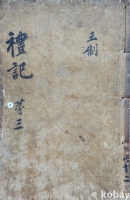 王制
禮記
kobay